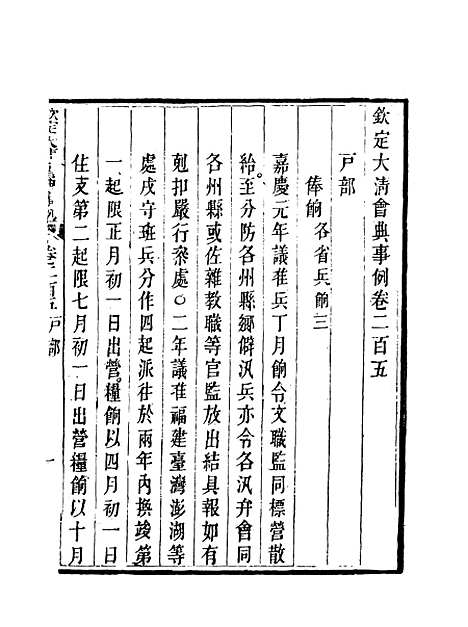 欽定大清會典事例卷二百五
戸部
俸餉 各省兵餉三
嘉慶元年議准兵丁月餉令文職監同標營散
給至分防各州縣鄉僻汛兵亦令各汛弁會同
各州縣或佐雜教職等官監放出結具報如有
剋扣嚴行叅處○二年議准福建臺灣澎湖等
處戍守班兵分作四起派往於兩年內換竣第
一起限正月初一日出營糧餉以四月初一日
住支第二起限七月初一日出營糧餉以十月
欽定大清會典事例 卷二百五 戸部 一